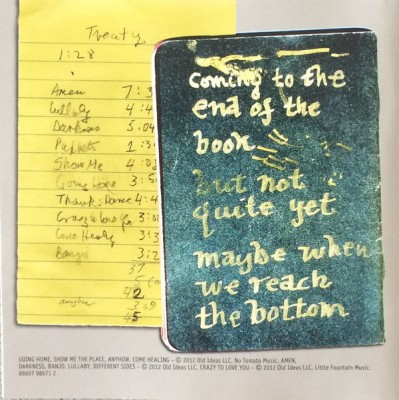 Treaty
1:28
Amen 7:3
Lullaby 4:4
Darkness 5:04
Puppets 2:3
Show Me 4:0
Going Home 3:5
Thanks Dance 4:4
Crazy to love you 3:0
Come Healy 3:3
Banjo 3:2
37
5
42
anyhow 3:09
45
coming to the
end of the
book
but not
quite yet
maybe when
we reach
the bottom
GOING HOME, SHOW ME THE PLACE, ANYHOW, COME HEALING – © 2012 Old Ideas LLC, No Tomato Music. AMEN,
DARKNESS, BANJO, LULLABY, DIFFERENT SIDES – © 2012 Old Ideas LLC. CRAZY TO LOVE YOU – © 2012 Old Ideas LLC, Little Fountain Music.
88697 98671 2